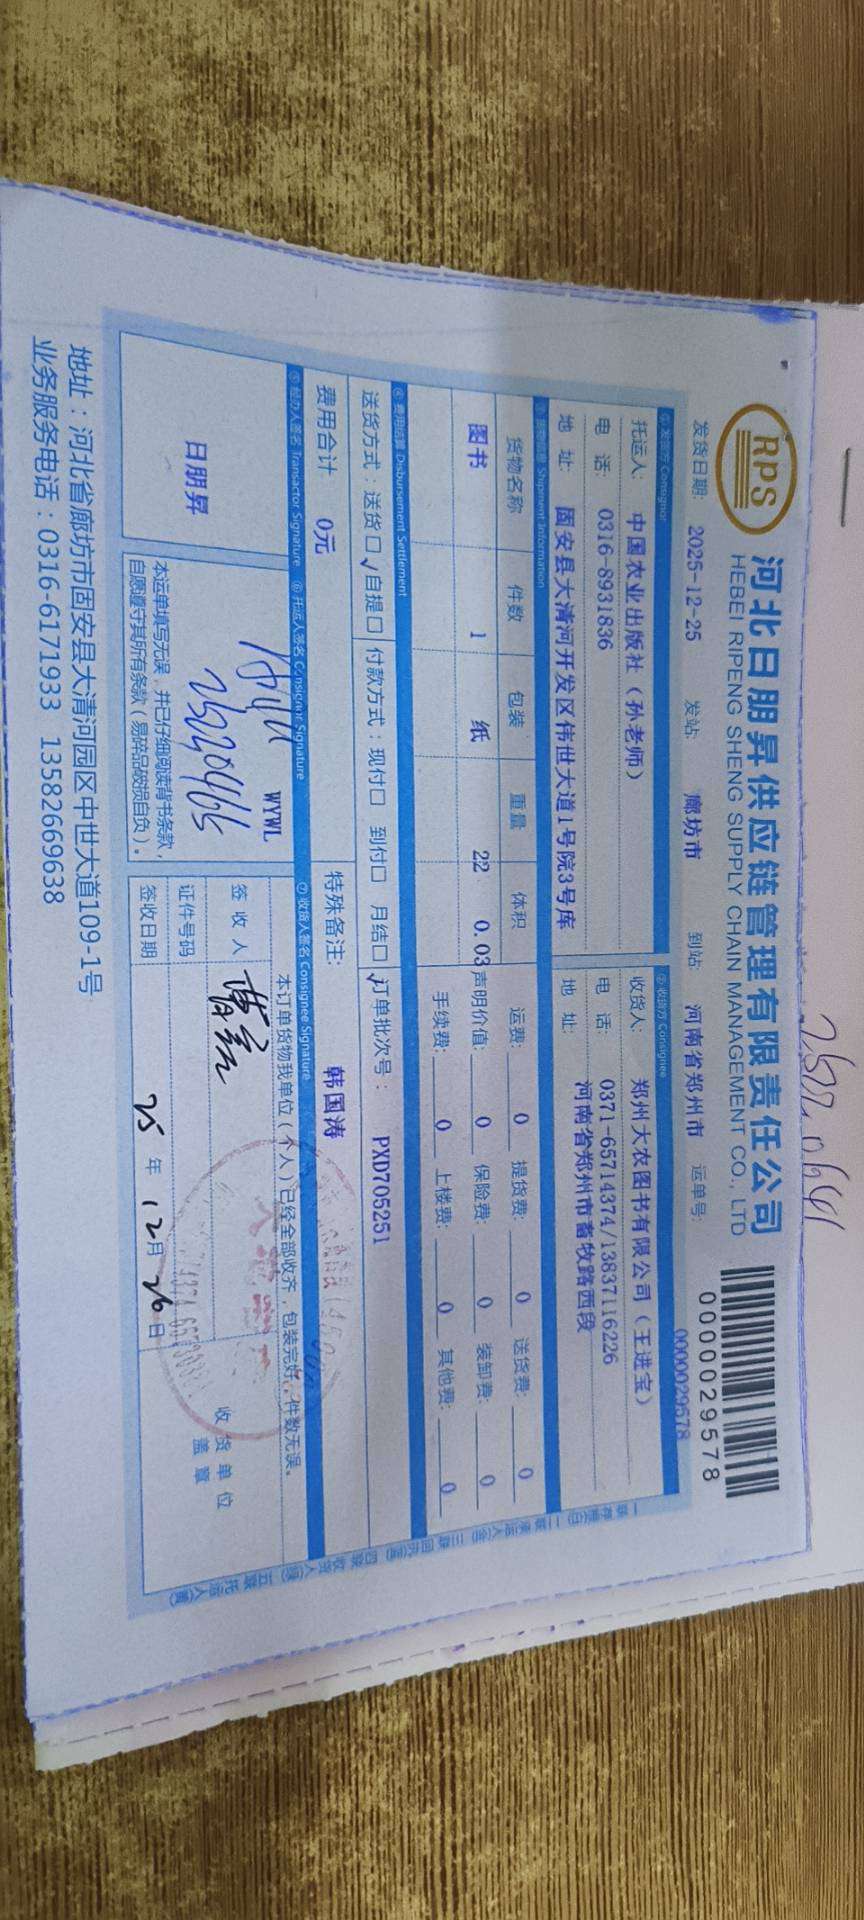 RPS
河北日朋昇供应链管理有限责任公司
HEBEI RIPENG SHENG SUPPLY CHAIN MANAGEMENT CO., LTD
0000029578
发货日期: 2025-12-25 发站: 廊坊市 到站: 河南省郑州市 运单号: 0000029578
① 发货方 Consignor ② 收货方 Consignee
托运人: 中国农业出版社（孙老师） 收货人: 郑州大农图书有限公司（王进宝）
电 话: 0316-8931836 电 话: 0371-65714374/13837116226
地 址: 固安县大清河开发区伟世大道1号院3号库 地 址: 河南省郑州市畜牧路西段
③ 货物信息 Shipment Information
货物名称 件数 包装 重量 体积 运费: 0 提货费: 0 送货费: 0
图书 1 纸 22 0.03 声明价值: 0 保险费: 0 装卸费: 0
手续费: 0 上楼费: 0 其他费: 0
④ 费用结算 Disbursement Settlement
送货方式：送货□ ✓自提□ 付款方式：现付□ 到付□ 月结□ ✓ 订单批次号： PXD705251
费用合计 0元 特殊备注: 韩国涛
⑤ 经办人签名 Transactor Signature ⑥ 托运人签名 Consignor Signature ⑦ 收货人签名 Consignee Signature
日朋昇
WYWL
本运单填写无误，并已仔细阅读背书条款，
自愿遵守其所有条款（易碎品破损自负）。
本订单货物我单位（个人）已经全部收齐，包装完好，件数无误。
签 收 人
证件号码
签收日期 25 年 12 月 26 日
收 货 单 位
盖 章
地址：河北省廊坊市固安县大清河园区中世大道109-1号
业务服务电话：0316-6171933 13582669638